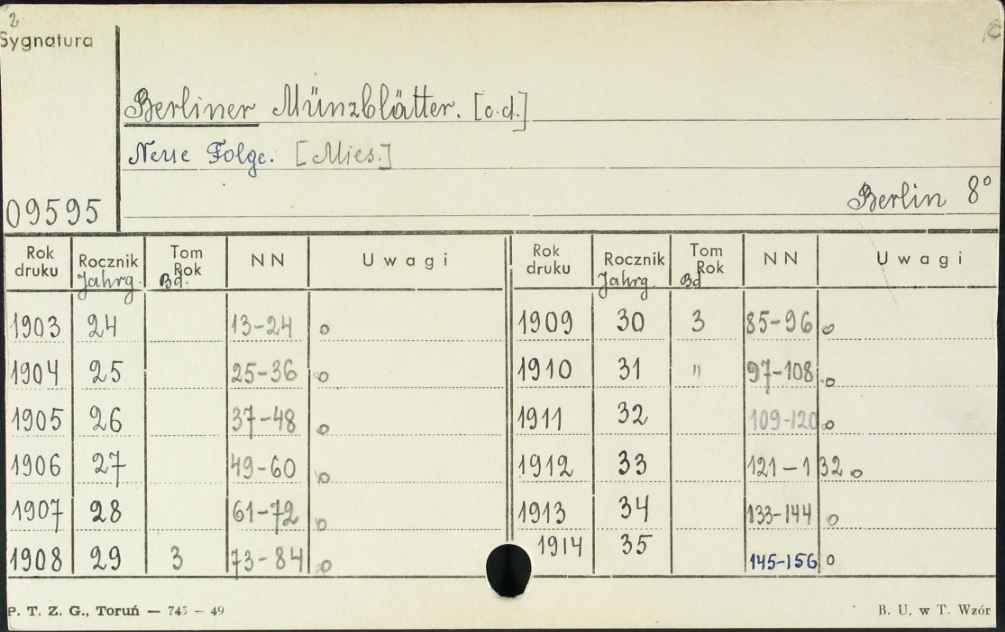 2
Sygnatura
Berliner Münzblätter. [o.d.]
Neue Folge. [Mies.]
Berlin 8°
09595
Rok druku Rocznik Jahrg. Tom Rok Bd. NN Uwagi Rok druku Rocznik Jahrg. Tom Rok Bd NN Uwagi
1903 24 13-24 o 1909 30 3 85-96 o
1904 25 25-36 o 1910 31 " 97-108 o
1905 26 37-48 o 1911 32 109-120 o
1906 27 49-60 o 1912 33 121-132 o
1907 28 61-72 o 1913 34 133-144 o
1908 29 3 73-84 o 1914 35 145-156 o
P. T. Z. G., Toruń — 745 — 49 B. U. w T. Wzór